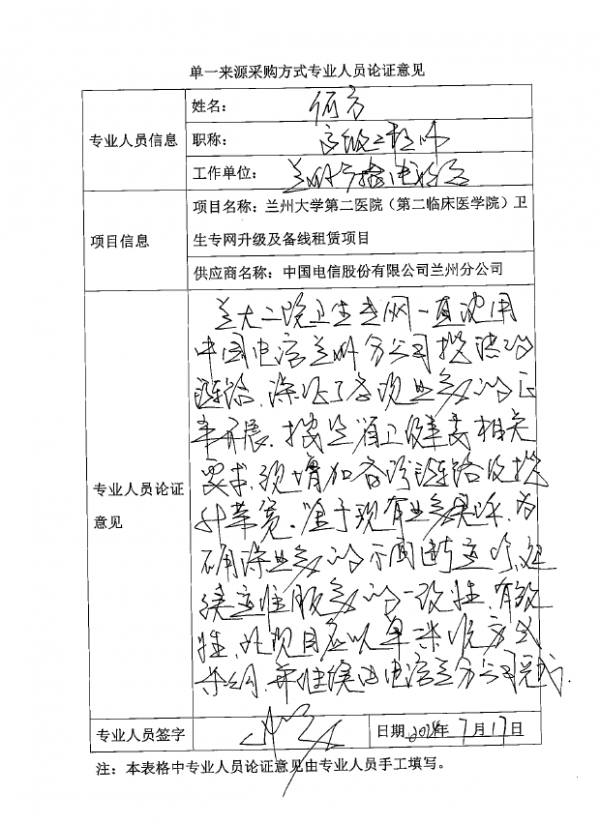 单一来源采购方式专业人员论证意见
专业人员信息
姓名：何方
职称：高级工程师
工作单位：兰州
项目信息
项目名称：兰州大学第二医院（第二临床医学院）卫
生专网升级及备线租赁项目
供应商名称：中国电信股份有限公司兰州分公司
专业人员论证
意见
兰大二院卫生专网一直使用
中国电信兰州分公司提供的
链路，保证了各项业务的正
常开展。按照省卫健委相关
要求，须增加备份链路及提
升带宽。鉴于现有业务，为
确保业务的不间断运行，延
续性服务的一致性、有效
性，此项目应以单一来源方式
采购，并继续由电信兰分公司完成.
专业人员签字
日期 2024年7月17日
注：本表格中专业人员论证意见由专业人员手工填写。